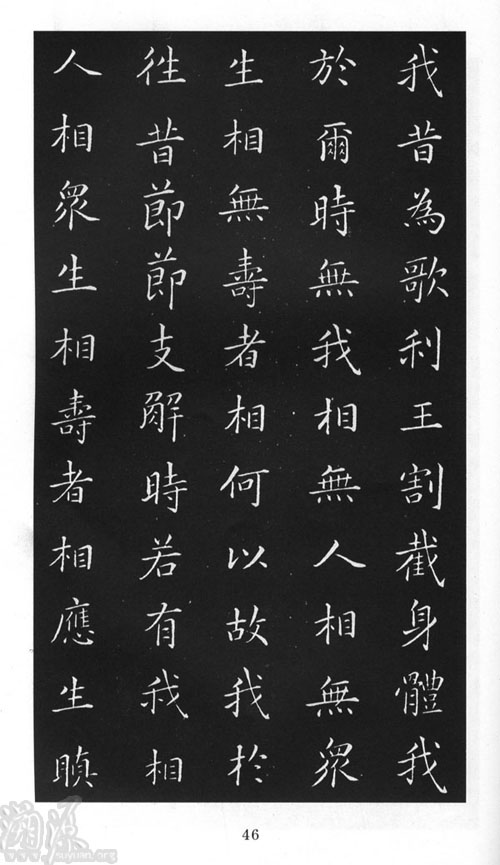 我昔為歌利王割截身體我
於爾時無我相無人相無眾
生相無壽者相何以故我於
往昔節節支解時若有我相
人相眾生相壽者相應生瞋
46
溯源
suyuan.org